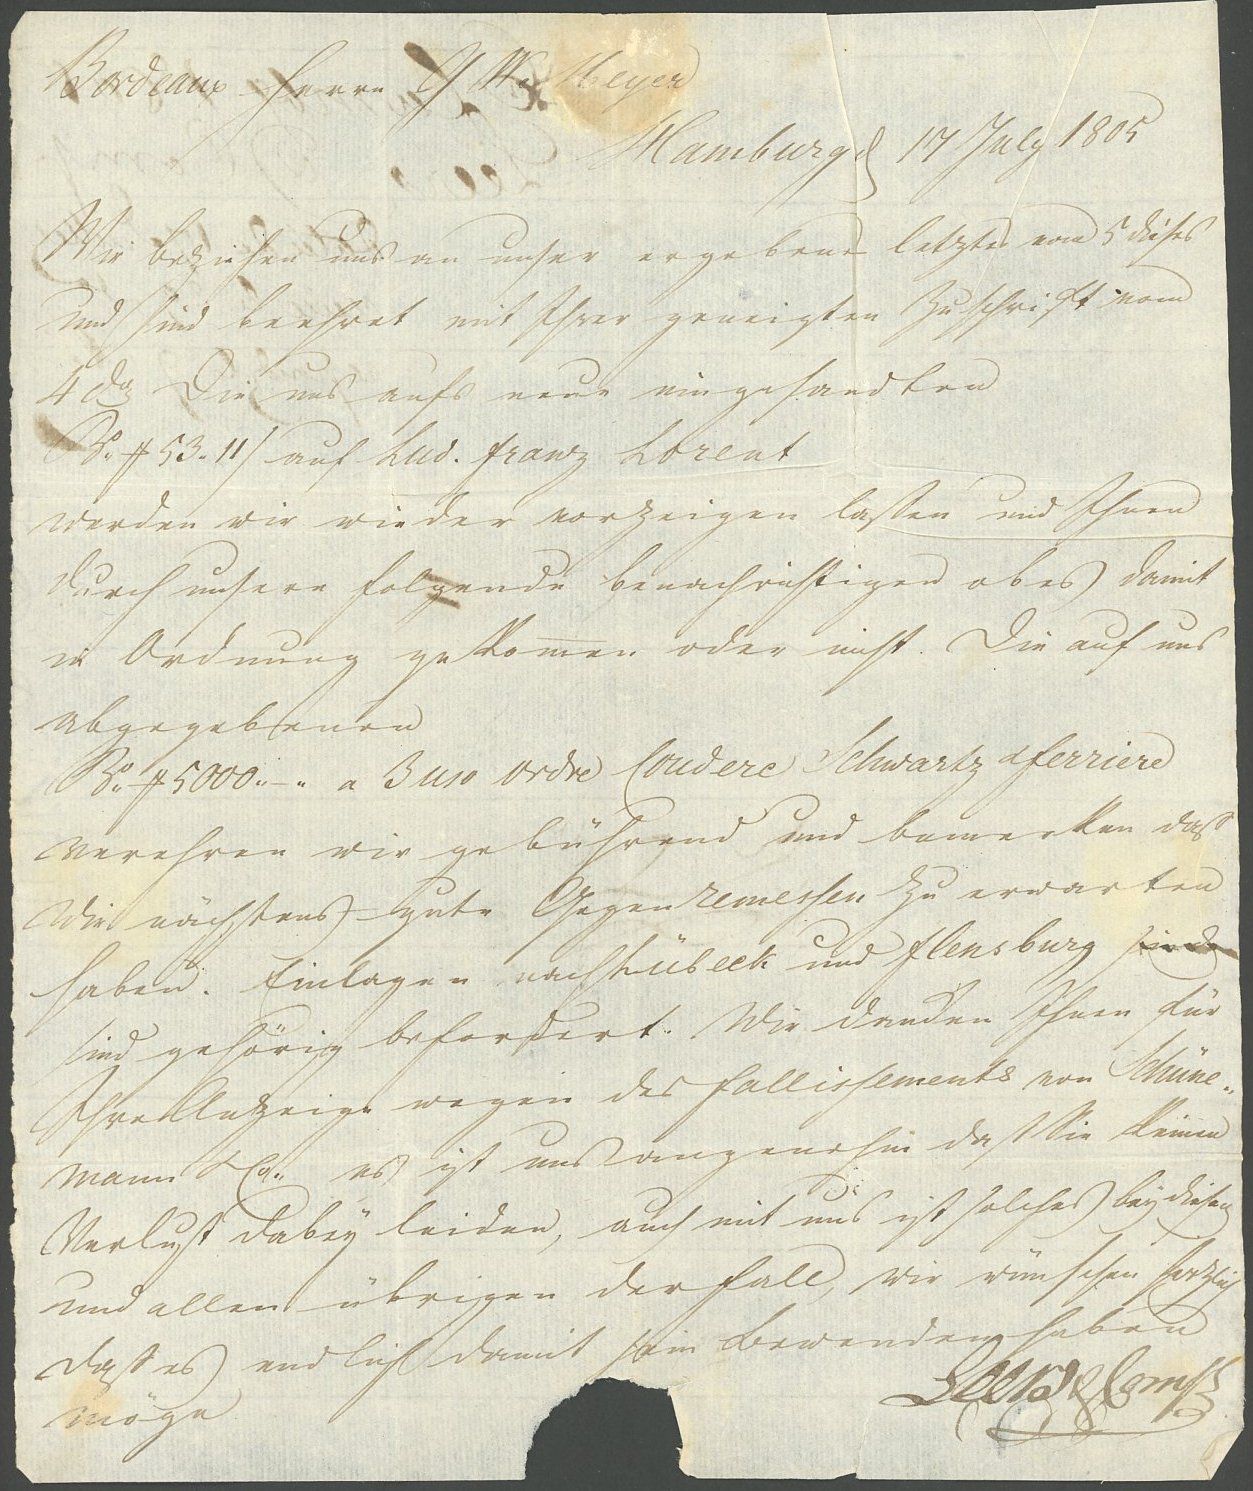 Bordeaux Herrn J W Meyer
Hamburg d 17 July 1805
Wir beziehen uns an unser ergebene letztes vom 5 dieses
und sind beehret mit Ihrer geneigten Zuschrift vom
4 do Die uns aufs neue eingesandten
53.11/ auf Lud. franz Lorent
werden wir wieder vorzeigen laßen und Ihnen
durch unsere folgende benachrichtigen ob es damit
in Ordnung gekom̅en oder nicht. Die auf uns
abgegebenen
5000.-. a 3 uso ordre Couderc Schwartz & ferriere
verehren wir gebührend und bemerken daß
wir nächstens gute Gegenremessen zu erwarten
haben. Einlagen nach Lübeck und flensburg
sind gehörig befordert. Wir danken Ihnen für
Ihre Anzeige wegen des fallissements von Schüne-
mann & Co. es ist uns angenehm daß Sie keinen
Verlust dabey leiden, auch mit uns ist solches bey diesen
und allen übrigen der fall, wir wünschen herzlich
daß es endlich damit sein Bewenden haben
möge
& Comp